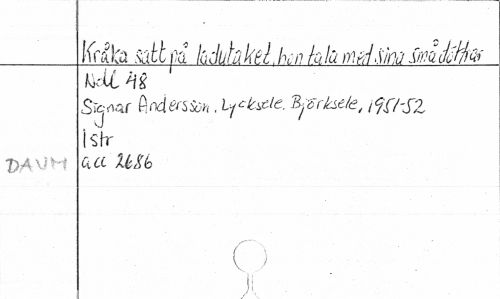 Kråka satt på ladutaket, hon tala med sina små döttrar
NdU 48
Signar Andersson, Lycksele, Björksele, 1951-52
1 str
DAUM acc 2686